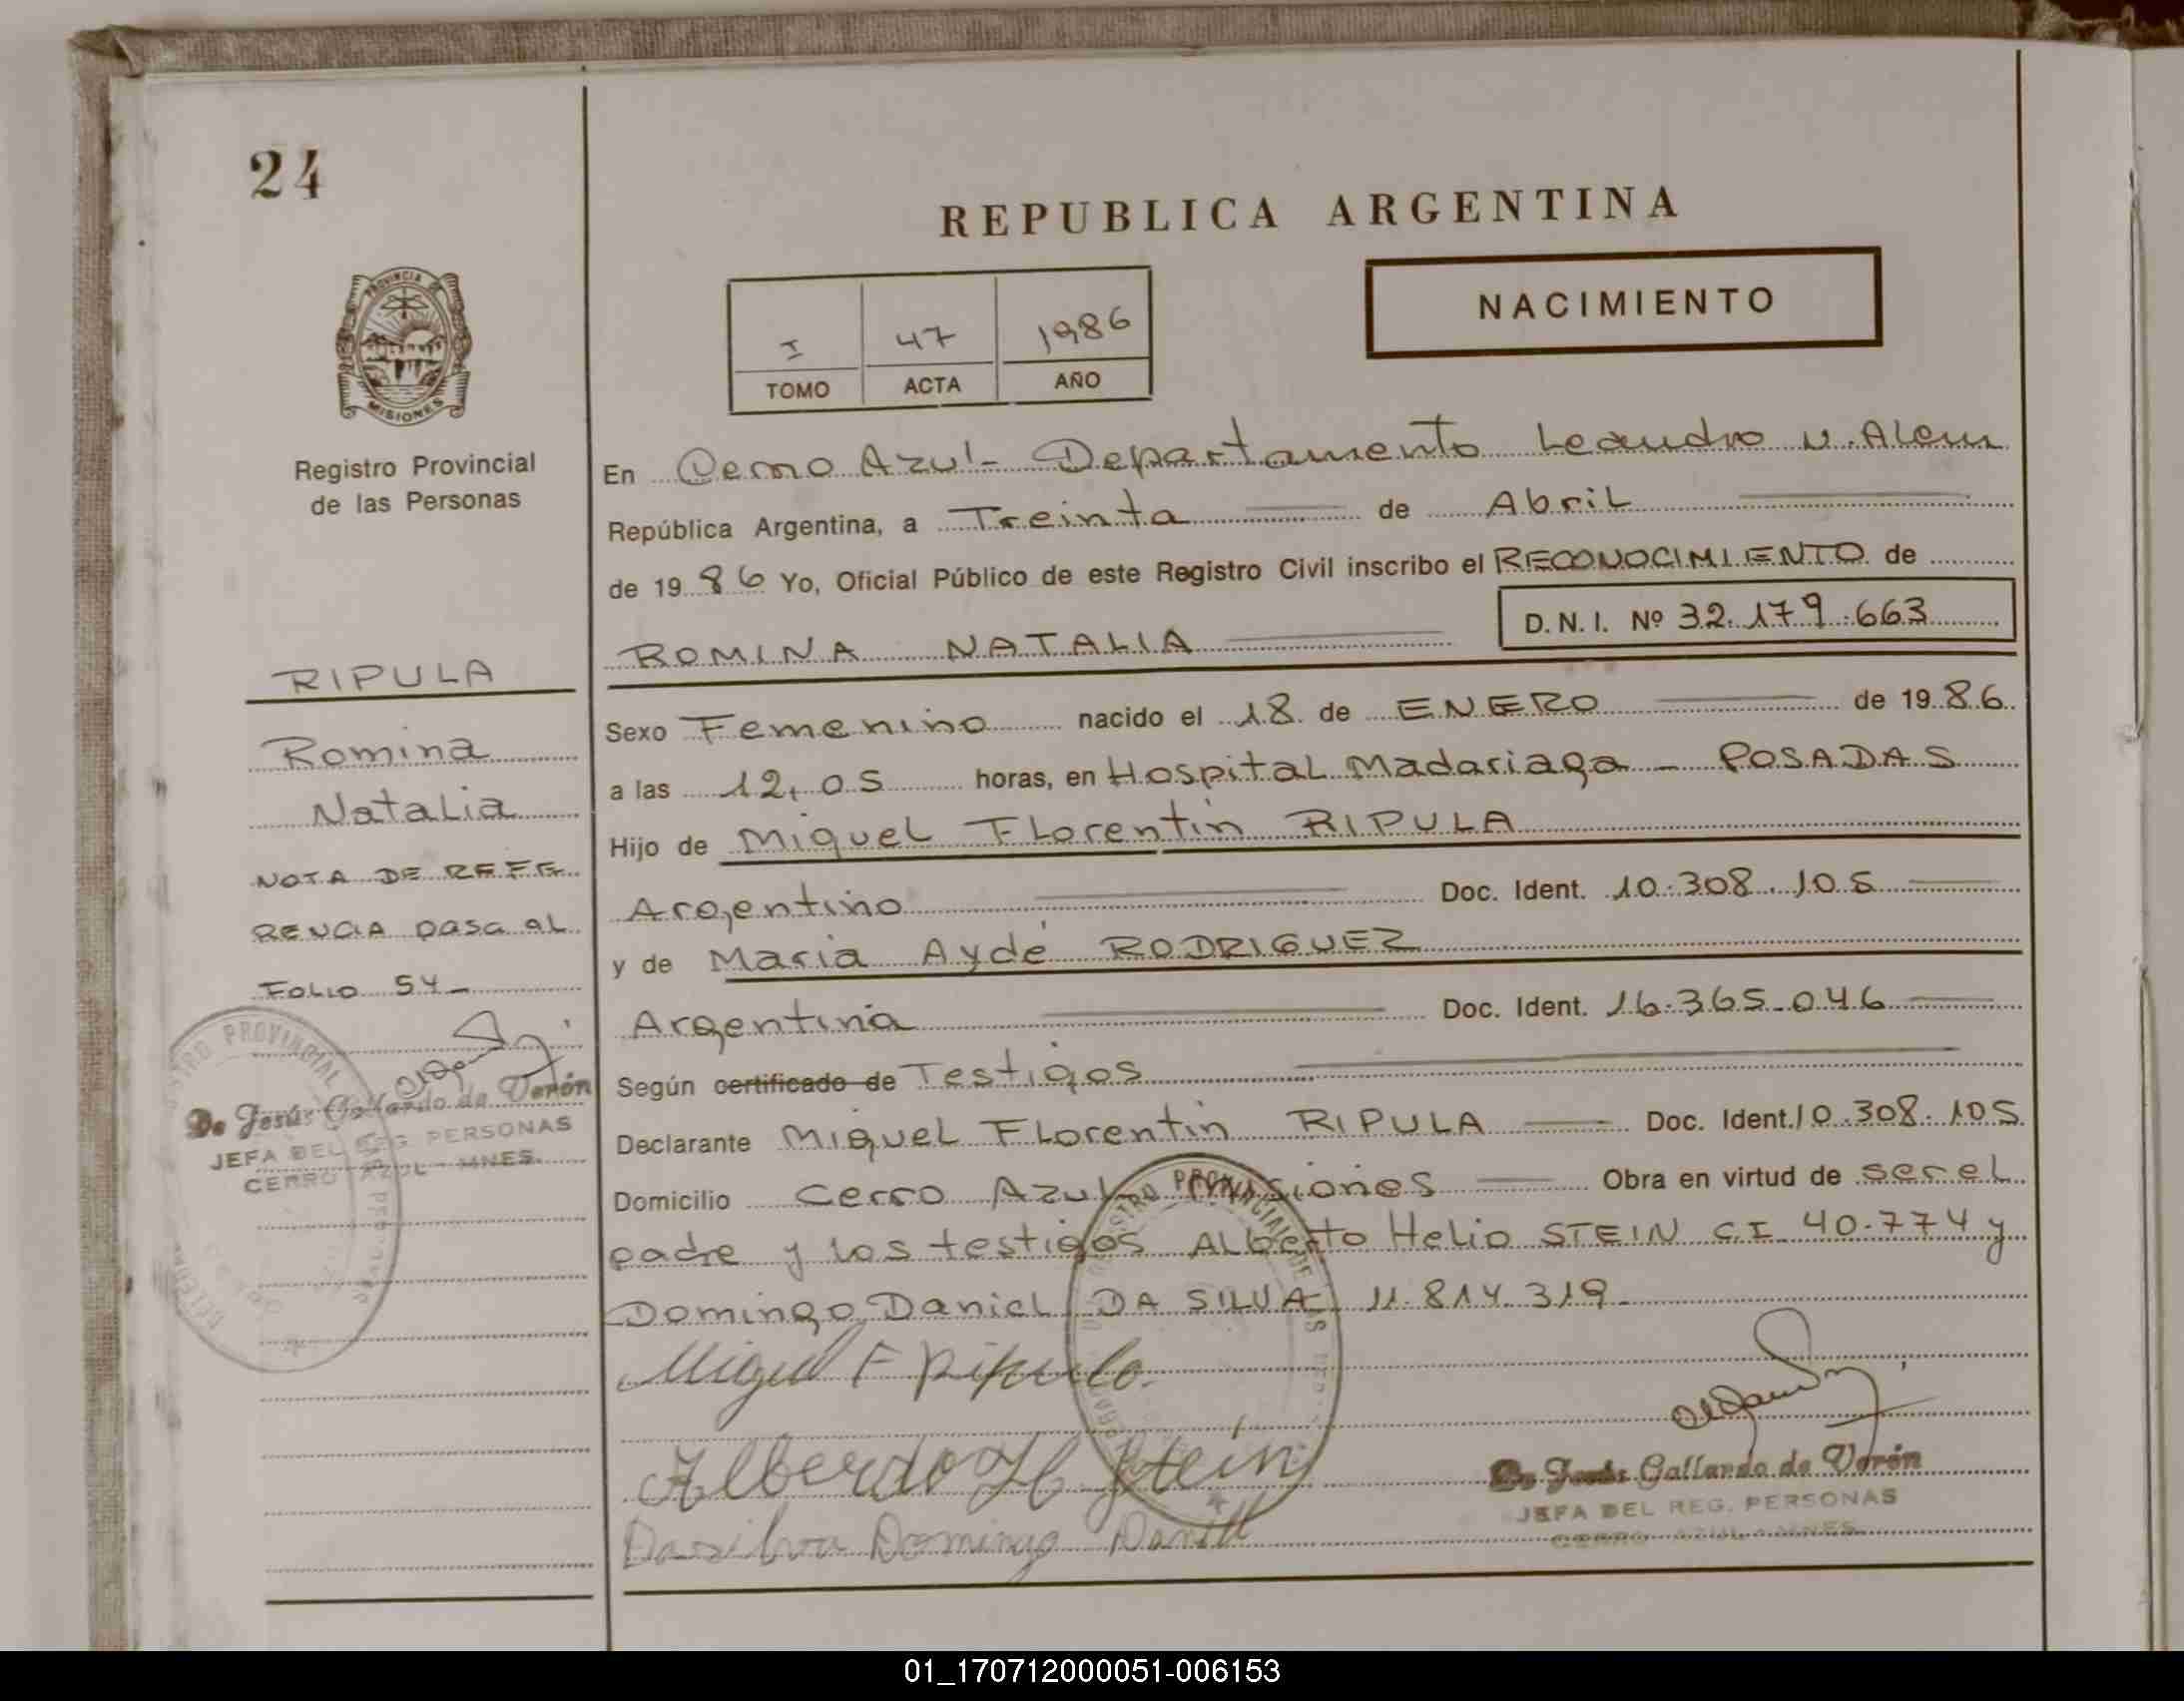 24
REPUBLICA ARGENTINA
PROVINCIA DE
MISIONES
Registro Provincial
de las Personas
I 47 1986
TOMO ACTA AÑO
NACIMIENTO
En Cerro Azul - Departamento Leandro N. Alem
República Argentina, a Treinta de Abril
de 1986 Yo, Oficial Público de este Registro Civil inscribo el RECONOCIMIENTO de
D.N.I. Nº 32.179.663
ROMINA NATALIA
RIPULA
Romina
Natalia
NOTA DE REFE
RENCIA pasa al
FOLIO 54-
De Jesús Gallardo de Verón
JEFA DEL REG. PERSONAS
CERRO AZUL - MNES.
Sexo Femenino nacido el 18 de ENERO de 1986
a las 12,05 horas, en Hospital Madariaga - POSADAS
Hijo de Miguel Florentin RIPULA
Argentino Doc. Ident. 10.308.105
y de Maria Aydé RODRIGUEZ
Argentina Doc. Ident. 16.365.046
Según certificado de Testigos
Declarante Miguel Florentin RIPULA Doc. Ident. 10.308.105
Domicilio Cerro Azul - Misiones Obra en virtud de ser el
padre y los testigos Alberto Helio STEIN C.I. 40.774 y
Domingo Daniel DA SILVA 11.814.319-
Miguel F Ripula
Alberto H Stein
Dasilva Domingo Daniel
De Jesús Gallardo de Verón
JEFA DEL REG. PERSONAS
CERRO AZUL - MNES.
01_170712000051-006153